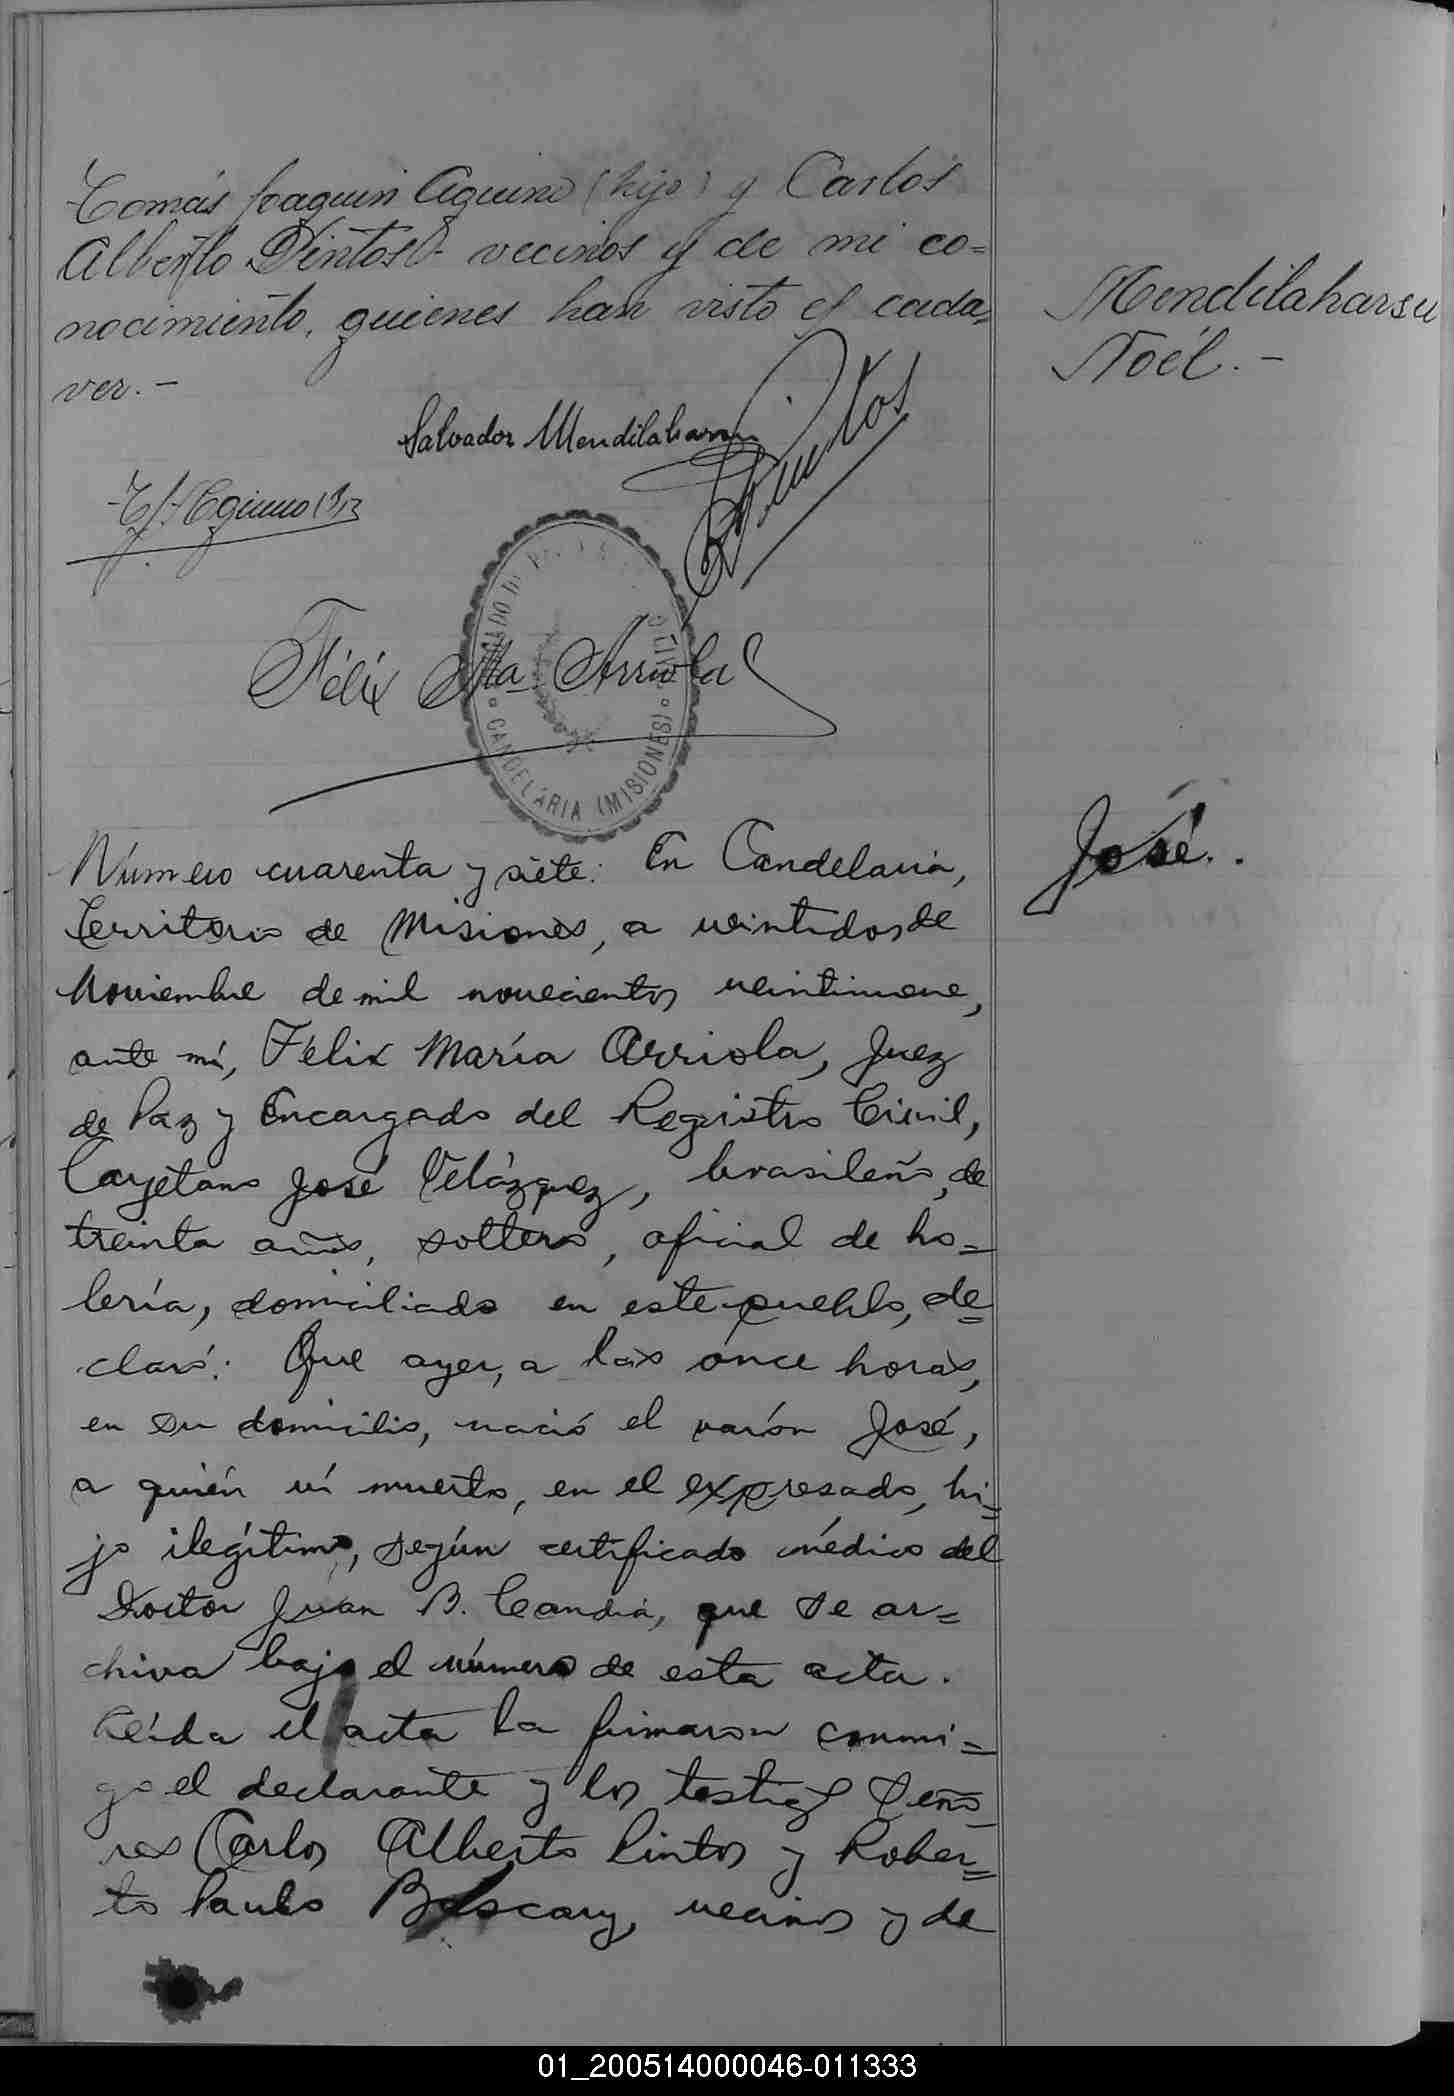 Tomás Joaquin Aquino (hijo) y Carlos
Alberto Pintos vecinos y de mi co=
nocimiento, quienes han visto el cada=
ver.-
Mendilaharsu
Noél.-
Salvador Mendilaharsu
Pintos
T. J. Aquino
Félix Ma Arriola
CANDELARIA (MISIONES)
José.
Número cuarenta y siete: En Candelaria,
Territorio de Misiones, a veintidos de
Noviembre de mil novecientos veintinueve,
ante mí, Félix María Arriola, Juez
de Paz y Encargado del Registro Civil,
Cayetano José Velázquez, brasileño, de
treinta años, soltero, oficial de ho=
lería, domiciliado en este pueblo, de=
claró: Que ayer, a las once horas,
en su domicilio, nació el varón José,
a quién ví muerto, en el expresado, hi=
jo ilegítimo, según certificado médico del
Doctor Juan B. Candia, que se ar=
chiva bajo el número de esta acta.
Leída el acta la firmaron conmi=
go el declarante y los testigos Seño
res Carlos Alberto Pintos y Rober=
to Paulo Boscary, vecinos y de
01_200514000046-011333